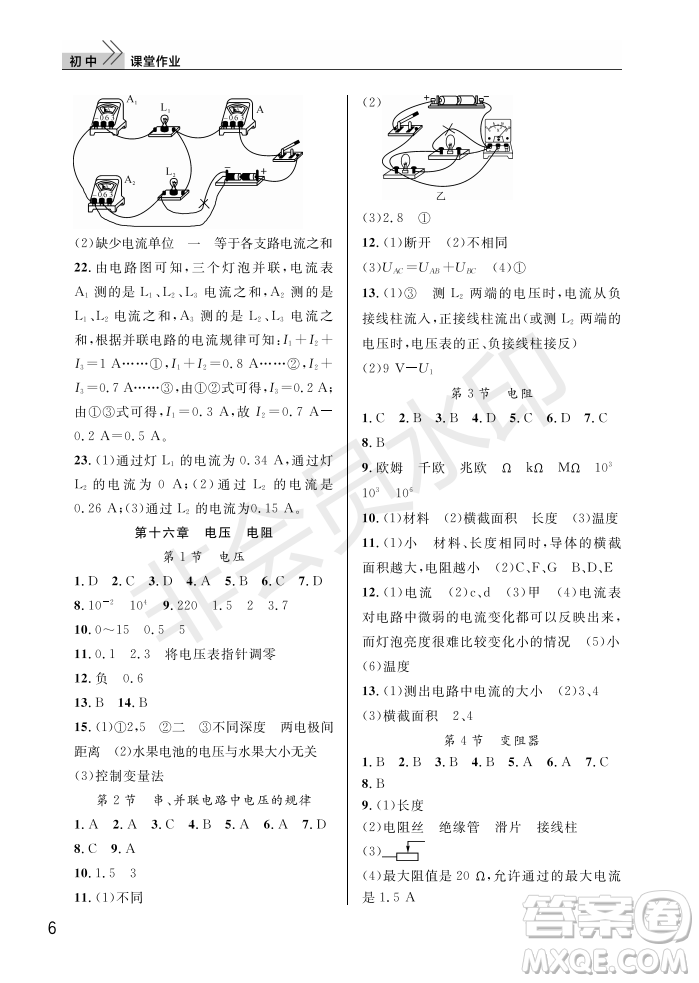 初中
课堂作业
A₁
L₁
A
A₂
L₂
(2)缺少电流单位 一 等于各支路电流之和
22.由电路图可知,三个灯泡并联,电流表
A₁ 测的是 L₁、L₂、L₃ 的电流,A₂ 测的是
L₁、L₂ 的电流,A₃ 测的是 L₂、L₃ 的电
流,根据并联电路的电流规律可知:I₁+I₂+
I₃=1 A……①,I₁+I₂=0.8 A……②,I₂+
I₃=0.7 A……③,由①②式可得,I₃=0.2 A,
由①③式可得,I₁=0.3 A,故 I₂=0.7 A-
0.2 A=0.5 A。
23.(1)通过灯 L₁ 的电流为 0.34 A,通过灯
L₂ 的电流为 0 A;(2)通过灯 L₁ 的电流是
0.26 A;(3)通过 L₂ 的电流为0.15 A。
第十六章 电压 电阻
第1节 电压
1.D 2.C 3.D 4.D 5.A 6.D 7.C
8.10⁻² 10⁴ 9.220 1.5 2 3.7
10.0～15 0.5 5
11.0.1 2.3 将电压表指针调零
12.负 0.6
13.B 14.B
15.(1)①2,5 ②二 ③不同深度 两电极间
距离 (2)水果电池的电压与水果大小无关
(3)控制变量法
第2节 串、并联电路中电压的规律
1.A 2.A 3.A 4.C 5.B 6.A 7.B
8.C 9.A
10.1.5 3
11.(1)不同
(2)
乙
(3)2.8 ①
12.(1)断开 (2)不相同
(3)U_AC=U_AB+U_BC (4)①
13.(1)③ 测 L₂ 两端的电压时,电流从负
接线柱流入,正接线柱流出(或测 L₂ 两端的
电压时,电压表的正、负接线柱接反)
(2)9 V-U₁
第3节 电阻
1.C 2.B 3.B 4.D 5.C 6.D 7.C
8.B
9.欧姆 千欧 兆欧 Ω kΩ MΩ 10³
10³ 10⁶
10.(1)材料 (2)横截面积 长度 (3)温度
11.(1)小 材料、长度相同时,导体的横截
面积越大,电阻越小 (2)C、F (3)D、E
12.(1)电流 (2)c、d (3)甲 (4)电流表
对电路中微弱的电流变化都可以反映出来,
而灯泡亮度很难比较变化小的情况 (5)小
(6)温度
13.(1)测出电路中电流的大小 (2)3、4
(3)横截面积 2、4
第4节 变阻器
1.B 2.B 3.A 4.C 5.D 6.A 7.C
8.B
9.(1)长度
(2)电阻丝 绝缘管 滑片 接线柱
(3)
(4)最大阻值是 20 Ω,允许通过的最大电流
是 1.5 A
6
非会员水印
答案圈
MXQE.COM